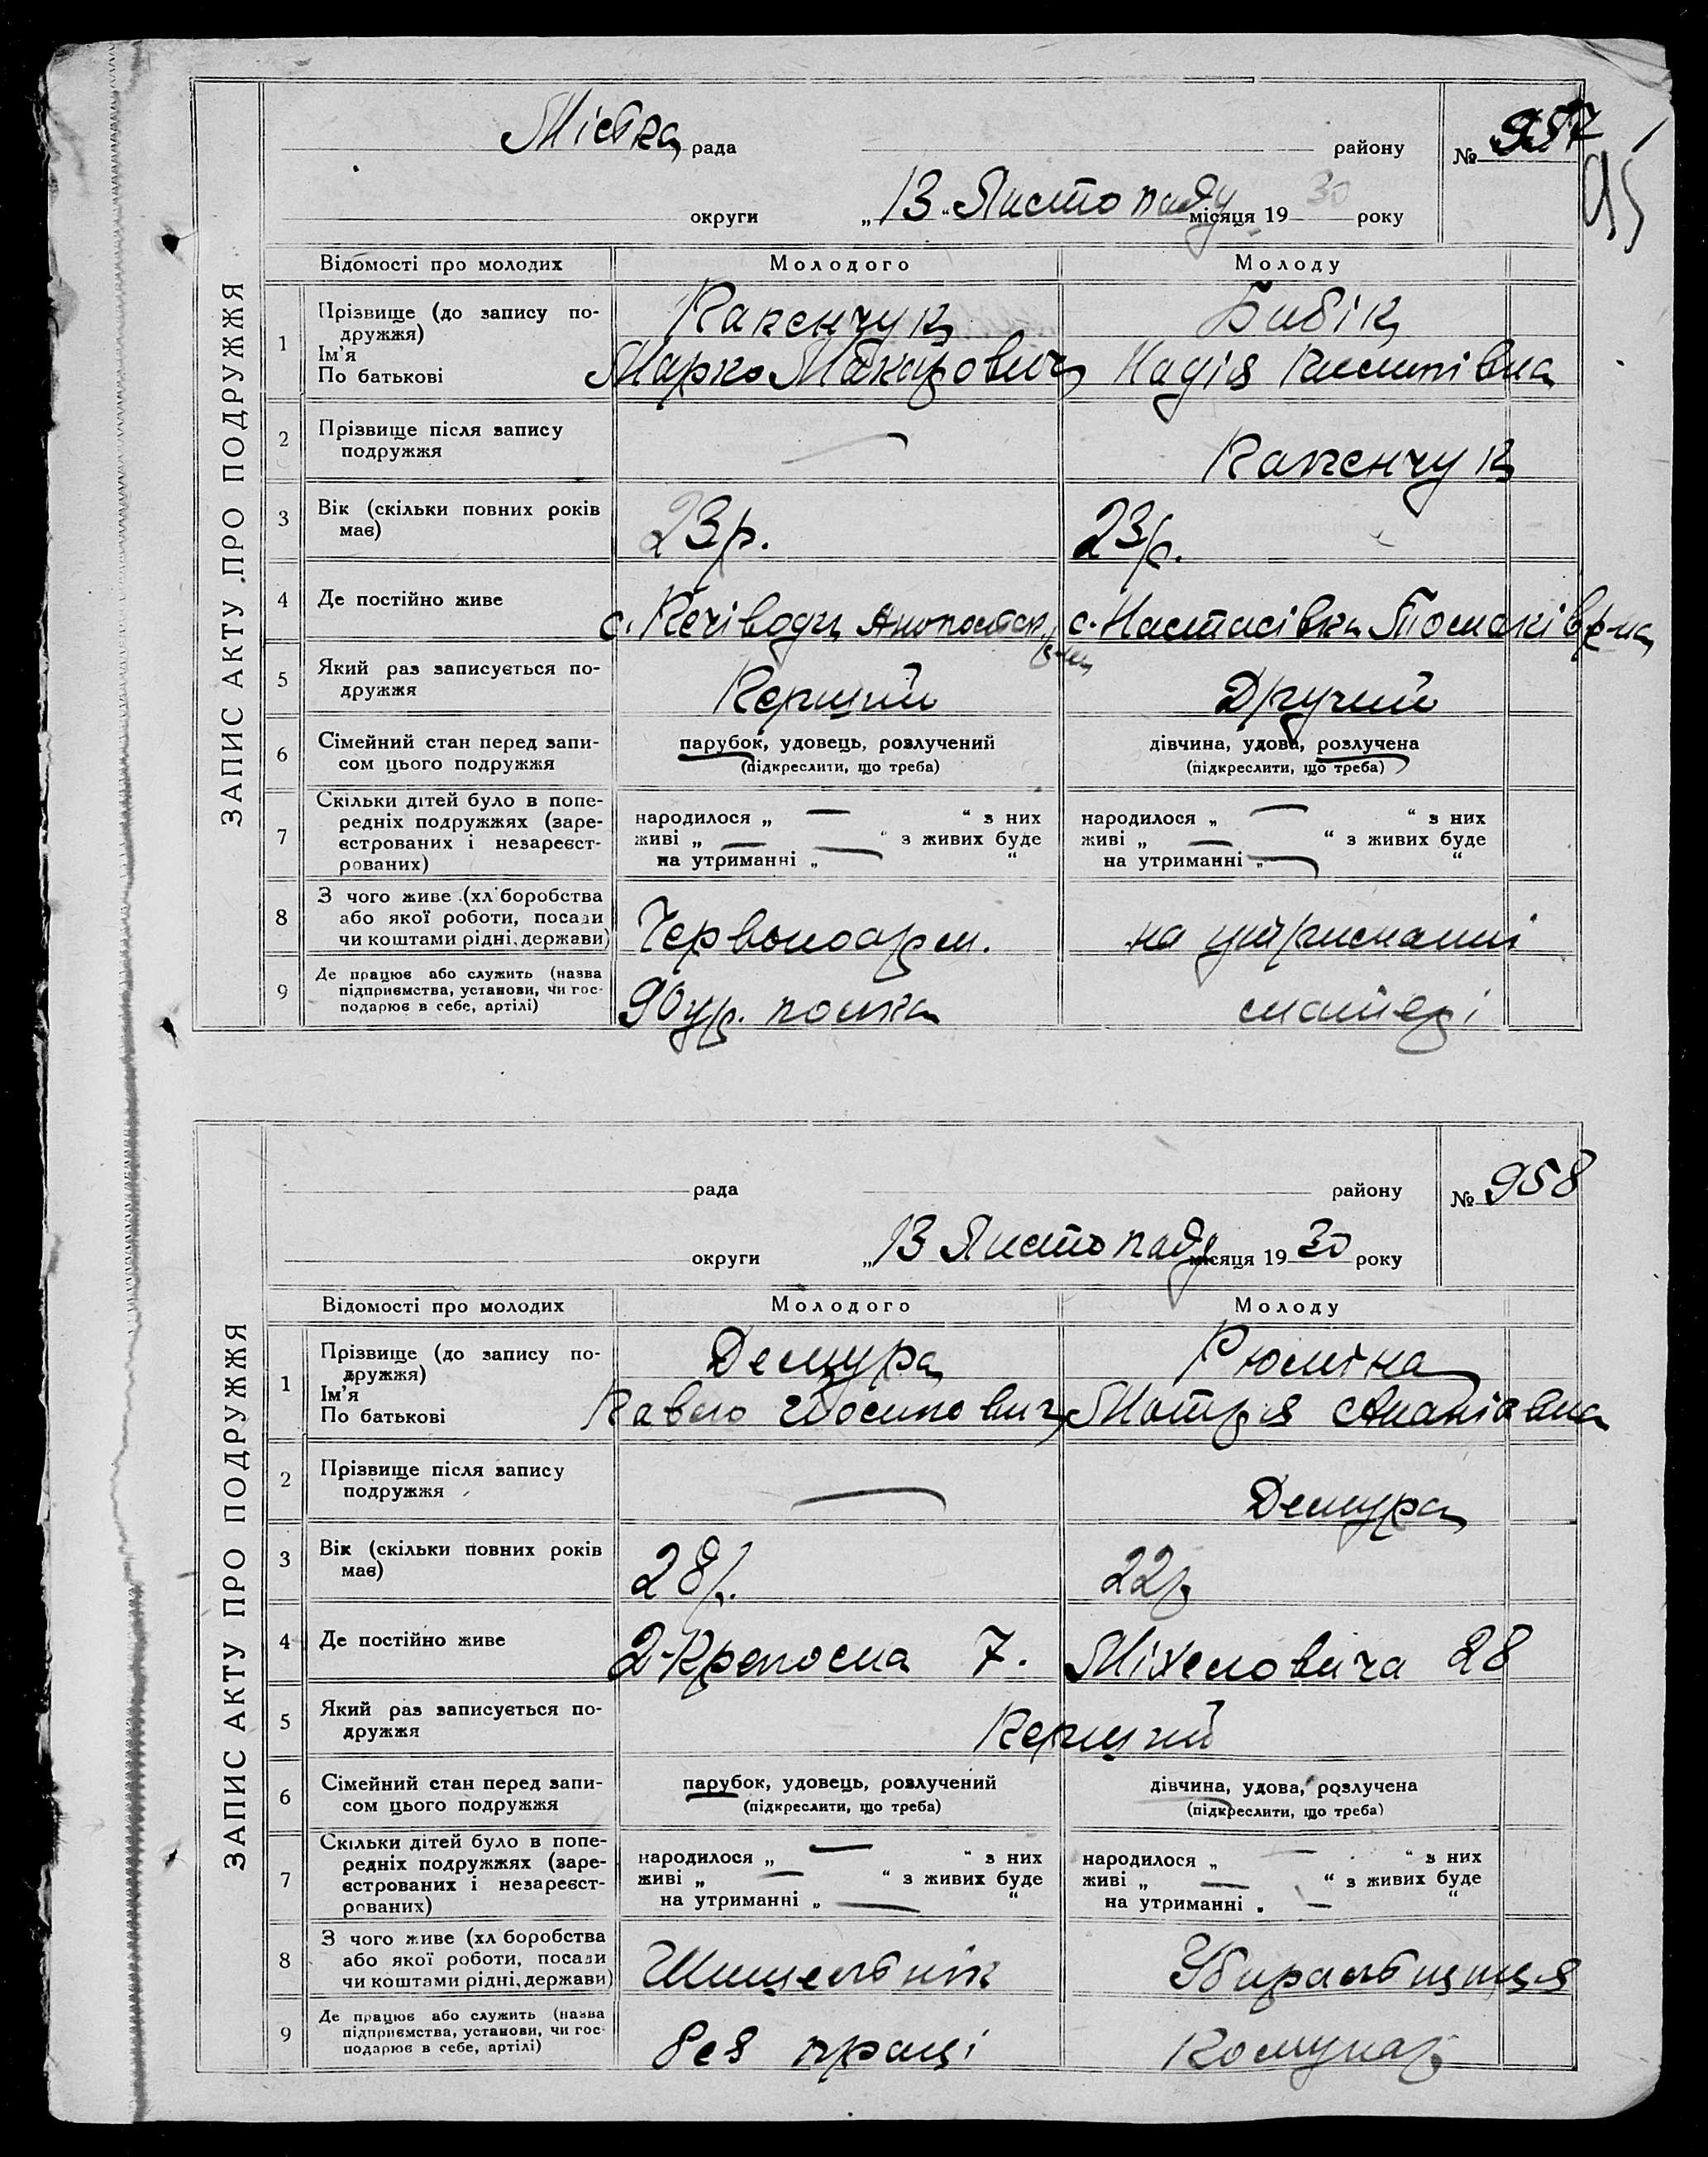 ЗАПИС АКТУ ПРО ПОДРУЖЖЯ
Міська рада району № 957
95
округи „13“ Листопаду місяця 1930 року
Відомості про молодих Молодого Молоду
1 Прізвище (до запису подружжя) Бабік
Ім'я
По батькові Марко Макарович Надія Пилипівна
2 Прізвище після запису подружжя —
3 Вік (скільки повних років має) 23 р. 23 р.
4 Де постійно живе с. Печіводи с. Настасівка Томаків р-на
5 Який раз записується подружжя Перший Другий
6 Сімейний стан перед записом цього подружжя парубок, удовець, розлучений дівчина, удова, розлучена
(підкреслити, що треба) (підкреслити, що треба)
7 Скільки дітей було в попередніх подружжях (зареєстрованих і незареєстрованих)
народилося „ — “ з них народилося „ — “ з них
живі „ — “ з живих буде живі „ — “ з живих буде
на утриманні „ — “ на утриманні „ — “
8 З чого живе (хліборобства або якої роботи, посади чи коштами рідні, держави) Червоноарм. на утриманні
9 Де працює або служить (назва підприємства, установи, чи господарює в себе, артілі) 90 ур. полка матері
ЗАПИС АКТУ ПРО ПОДРУЖЖЯ
рада району № 958
округи „13 Листопаду місяця 1930 року
Відомості про молодих Молодого Молоду
1 Прізвище (до запису подружжя) Демура Рюміна
Ім'я
По батькові Павло Йосипович Мотря Ананіівна
2 Прізвище після запису подружжя — Демура
3 Вік (скільки повних років має) 28 р. 22 р.
4 Де постійно живе 2-Крепосна 7. Міхеловича 28
5 Який раз записується подружжя Перший
6 Сімейний стан перед записом цього подружжя парубок, удовець, розлучений дівчина, удова, розлучена
(підкреслити, що треба) (підкреслити, що треба)
7 Скільки дітей було в попередніх подружжях (зареєстрованих і незареєстрованих)
народилося „ — “ з них народилося „ — “ з них
живі „ — “ з живих буде живі „ — “ з живих буде
на утриманні „ — “ на утриманні „ — “
8 З чого живе (хліборобства або якої роботи, посади чи коштами рідні, держави) Шишельнік Убиральщиця
9 Де працює або служить (назва підприємства, установи, чи господарює в себе, артілі) без праці Комунар